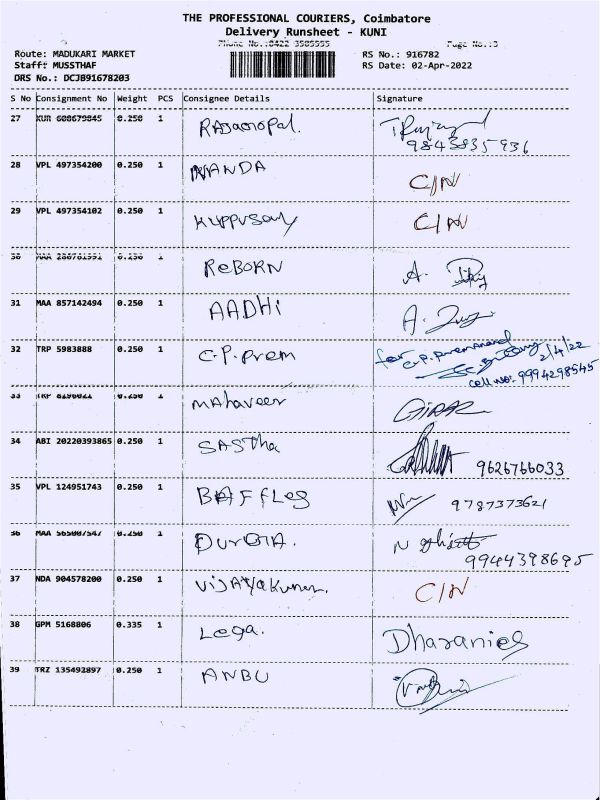 THE PROFESSIONAL COURIERS, Coimbatore
Delivery Runsheet - KUNI
Phone No.:0422 3505555 Page No.:3
Route: MADUKARI MARKET RS No.: 916782
Staff: MUSSTHAF RS Date: 02-Apr-2022
DRS No.: DCJB91678203
S No Consignment No Weight PCS Consignee Details Signature
27 KUR 600679845 0.250 1 RAJAGOPAL.
9843835936
28 VPL 497354200 0.250 1 NANDA C/N
29 VPL 497354102 0.250 1 KUPPUSAMY C/N
30 MAA 0.250 1 REBORN A.
31 MAA 857142494 0.250 1 AADHI A.
32 TRP 5983888 0.250 1 C.P. Prem for C.P. Premanand
2/4/22
cell no: 9994298545
33 TRP 0.250 1 MAhaveer
34 ABI 20220393865 0.250 1 SASTha 9626766033
35 VPL 124951743 0.250 1 BAFFLES 9787373621
36 MAA 565007547 0.250 1 DURGA. N
9944398695
37 NDA 904578200 0.250 1 VIJAYAKUMAR. C/N
38 GPM 5168806 0.335 1 Lega. Dharanies
39 TRZ 135492897 0.250 1 ANBU